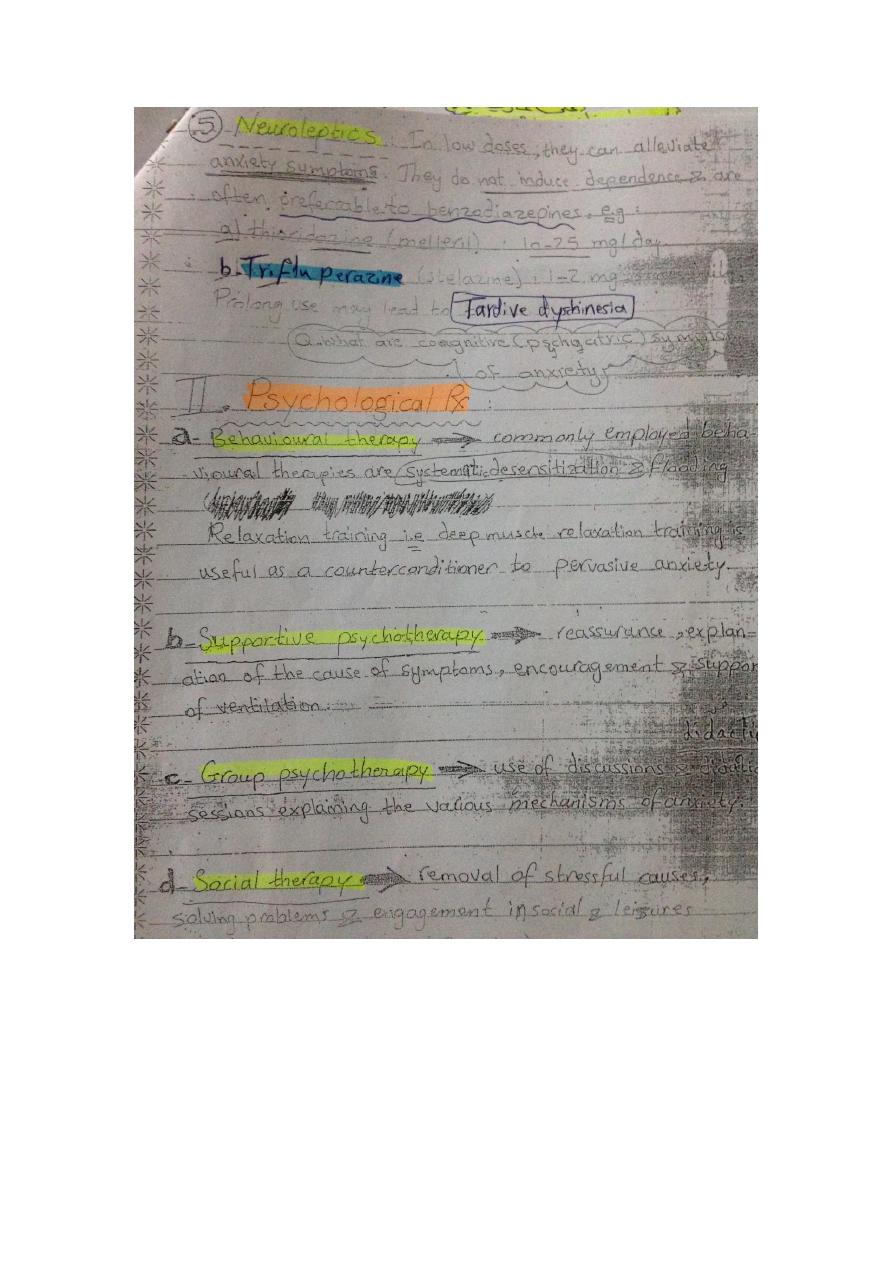 5 Neuroleptics: In low doses, they can alleviate
anxiety symptoms. They do not induce dependence & are
often preferrable to benzodiazepines, e.g:
a) thioridazine (melleril): 10-25 mg/day.
b. Trifluperazine (stelazine): 1-2 mg
Prolong use may lead to Tardive dyshinesia
Q. what are coagnitive (pschgiatric)
of anxiety?
II. Psychological Rx:
a- Behavioural therapy → commonly employed beha-
vioural therapies are systematic desensitization & flooding
Relaxation training i.e deep muscle relaxation training is
useful as a counterconditioner to pervasive anxiety.
b- Supportive psychotherapy → reassurance, explan=
ation of the cause of symptoms, encouragement & suppor
of ventilation.
didacti
c- Group psychotherapy → use of discussions & didactic
sessions explaining the various mechanisms of anxiety.
d- Social therapy → removal of stressful causes,
solving problems & engagement in social & leisures